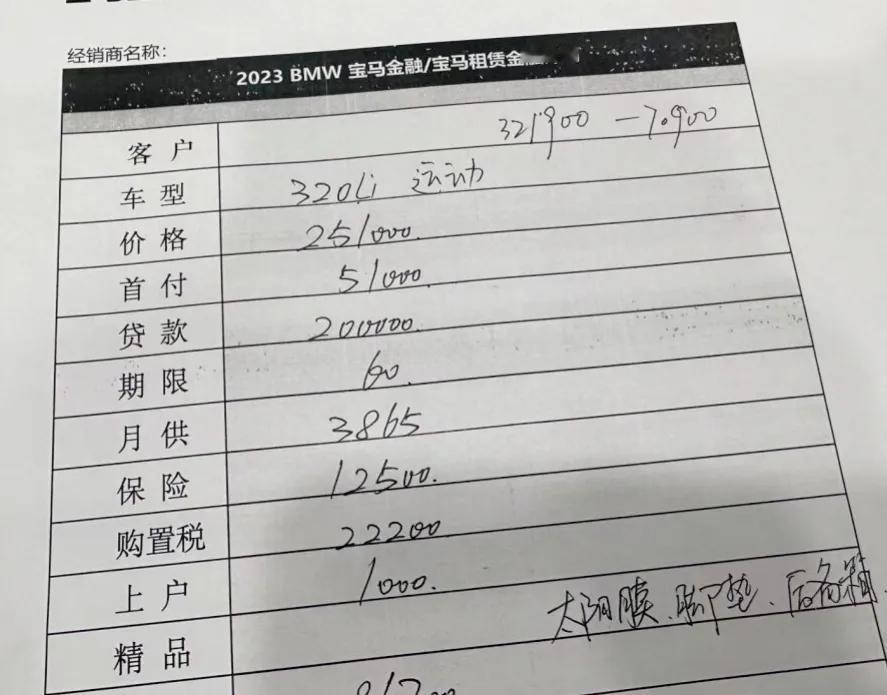 经销商名称：
2023 BMW 宝马金融/宝马租赁金
客户 321900 － 7.900
车型 320Li 运动
价格 251000.
首付 51000.
贷款 200000.
期限 60.
月供 3865
保险 12500.
购置税 22200
上户 1000.
精品 太阳膜、脚垫、后备箱